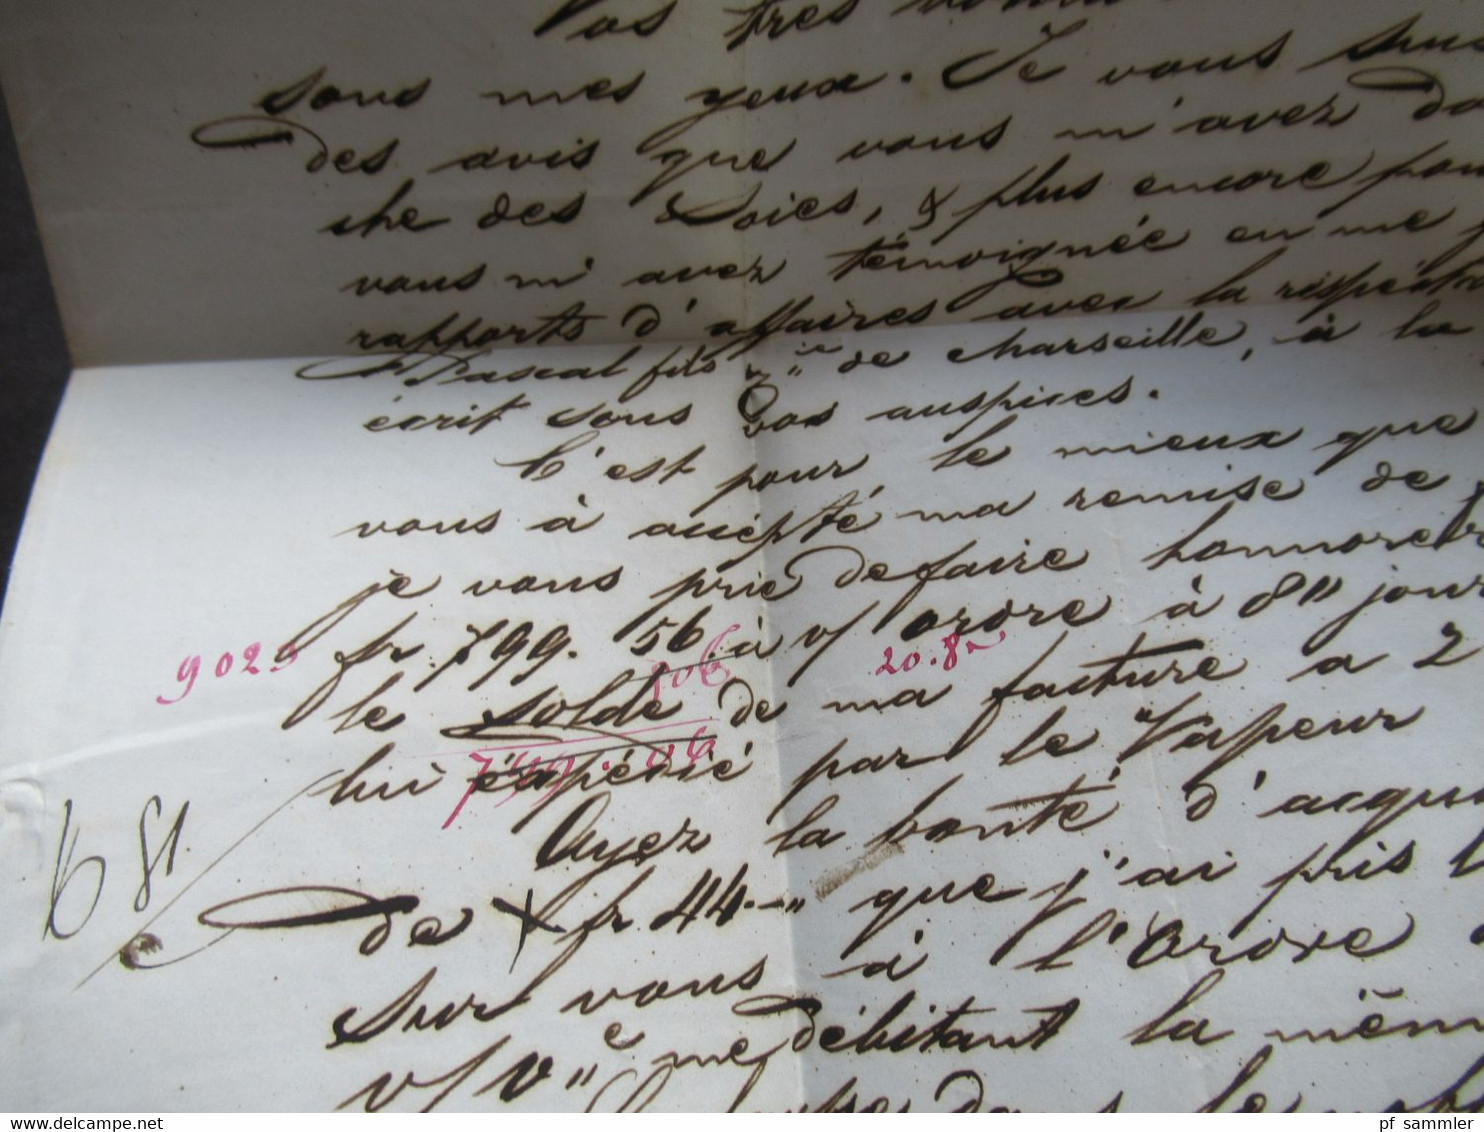 Vos très
sous mes yeux. Je vous
des avis que vous m'avez
che des Soies, & plus encore pour
vous m'avez témoignée en me
rapports d'affaires avec la
Pascal fils de Marseille, à la
écrit sous vos auspices.
C'est pour le mieux que
vous à accepté ma remise de
je vous prie de faire honnorer
9029 fr. 799. 56. à v/ ordre à 8" jour
106 20.8
le solde de ma facture a 2
799.06
lui expédié par le Vapeur
81.
Ayez la bonté d'acqu
de X fr. 44.-" que j'ai pris
sur vous à l'ordre
me débitant la mêm
delcampe.net
pf_sammler